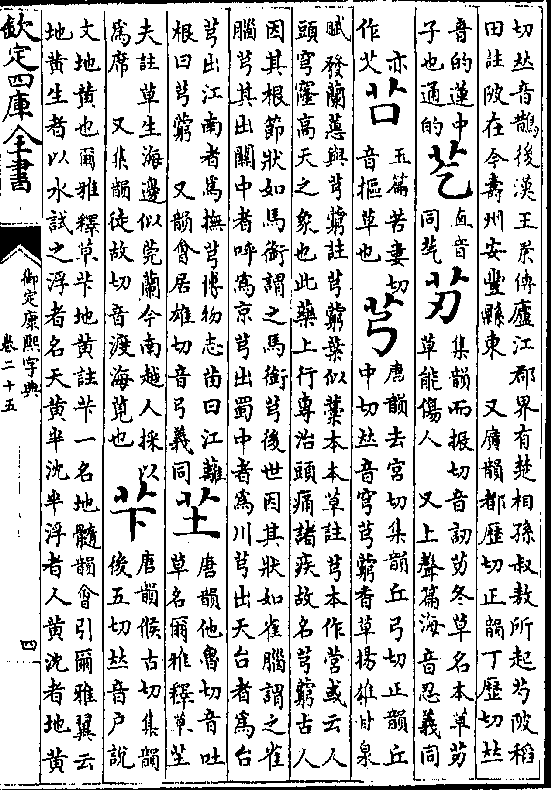 切𠀤音鵲後漢王景傳廬江郡界有楚相孫叔敖所起芍陂稻
田註陂在今壽州安豐縣東　又廣韻都歷切正韻丁歷切𠀤
音的蓮中
子也通的
直音
同芞
集韻而振切音認 冬草名本草
草能傷人　又上聲篇海音忍義同
亦
作
玉篇苦婁切
音摳草也
芎
唐韻去宮切集韻丘弓切正韻丘
中切𠀤音穹芎藭香草揚雄甘泉
賦發蘭蕙與芎藭註芎藭葉似藁本本草註芎本作营或云人
頭穹窿高天之象也此藥上行專治頭痛諸疾故名芎藭古人
因其根節狀如馬銜謂之馬銜芎後世因其狀如雀腦謂之雀
腦芎其出關中者呼爲京芎出蜀中者爲川芎出天台者爲台
芎出江南者爲撫芎博物志苗曰江蘺
根曰芎藭　又韻會居雄切音弓義同
芏
唐韻他魯切音吐
草名爾雅釋草芏
夫註草生海邊似莞蘭今南越人採以
爲席　又集韻徒故切音渡海莧也
芐
唐韻候古切集韻
後五切𠀤音戸說
文地黃也爾雅釋草芐地黃註芐一名地髓韻會引爾雅翼云
地黃生者以水試之浮者名天黃半沈半浮者人黃沈者地黃
欽定四庫全書
御定康熙字典
卷二十五
四